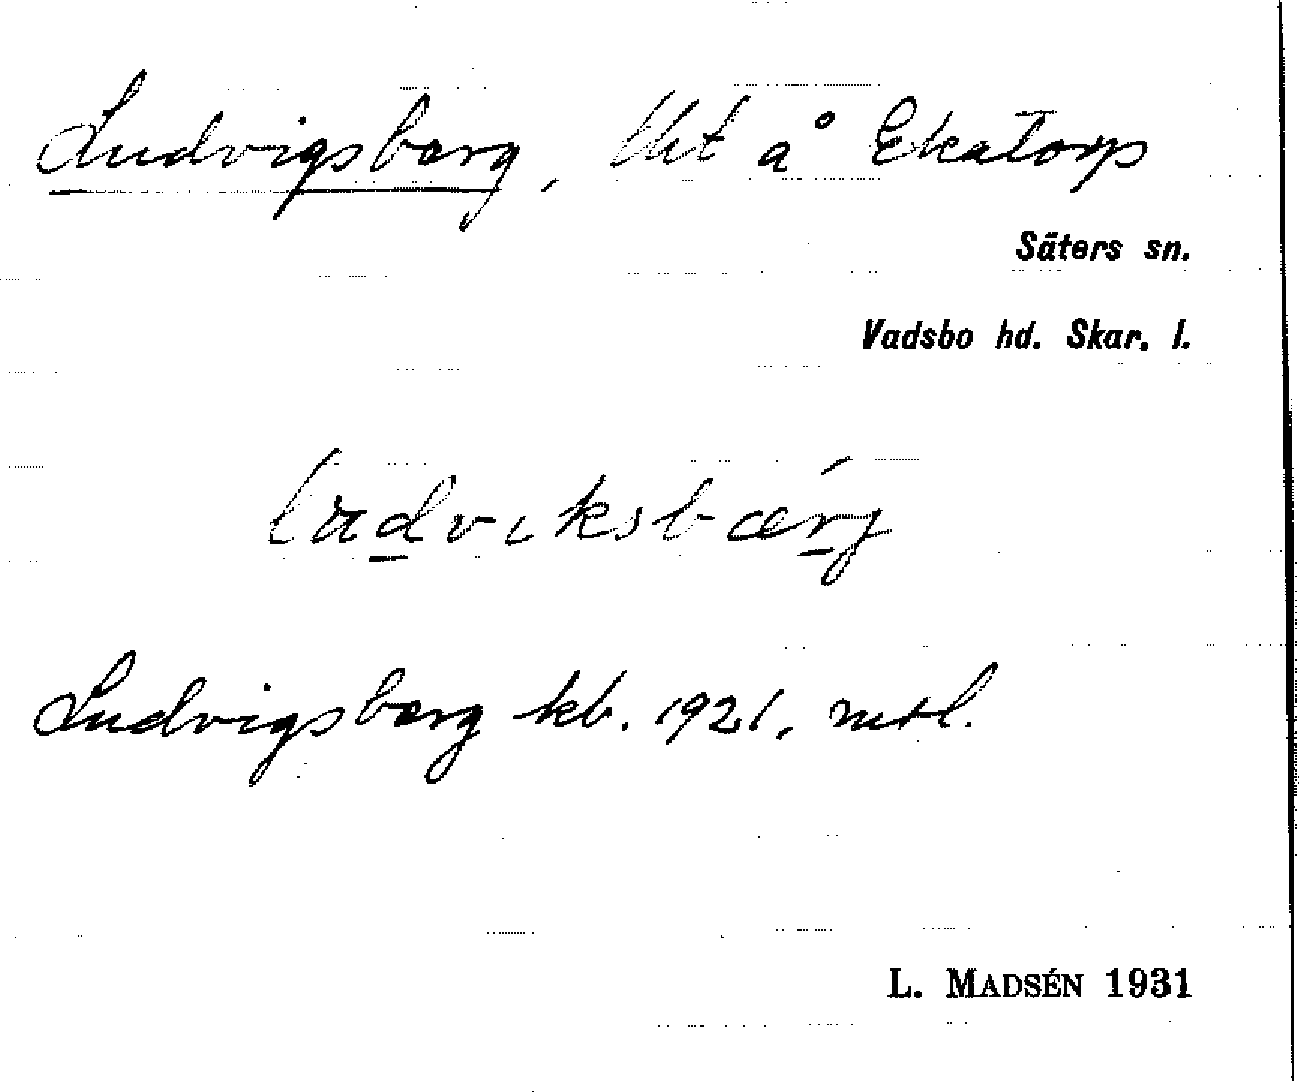 Ludvigsberg, Uht å Ekatorp
Säters sn.
Vadsbo hd. Skar. l.
Ludvigsberg kb. 1921, mtl.
L. MADSÉN 1931